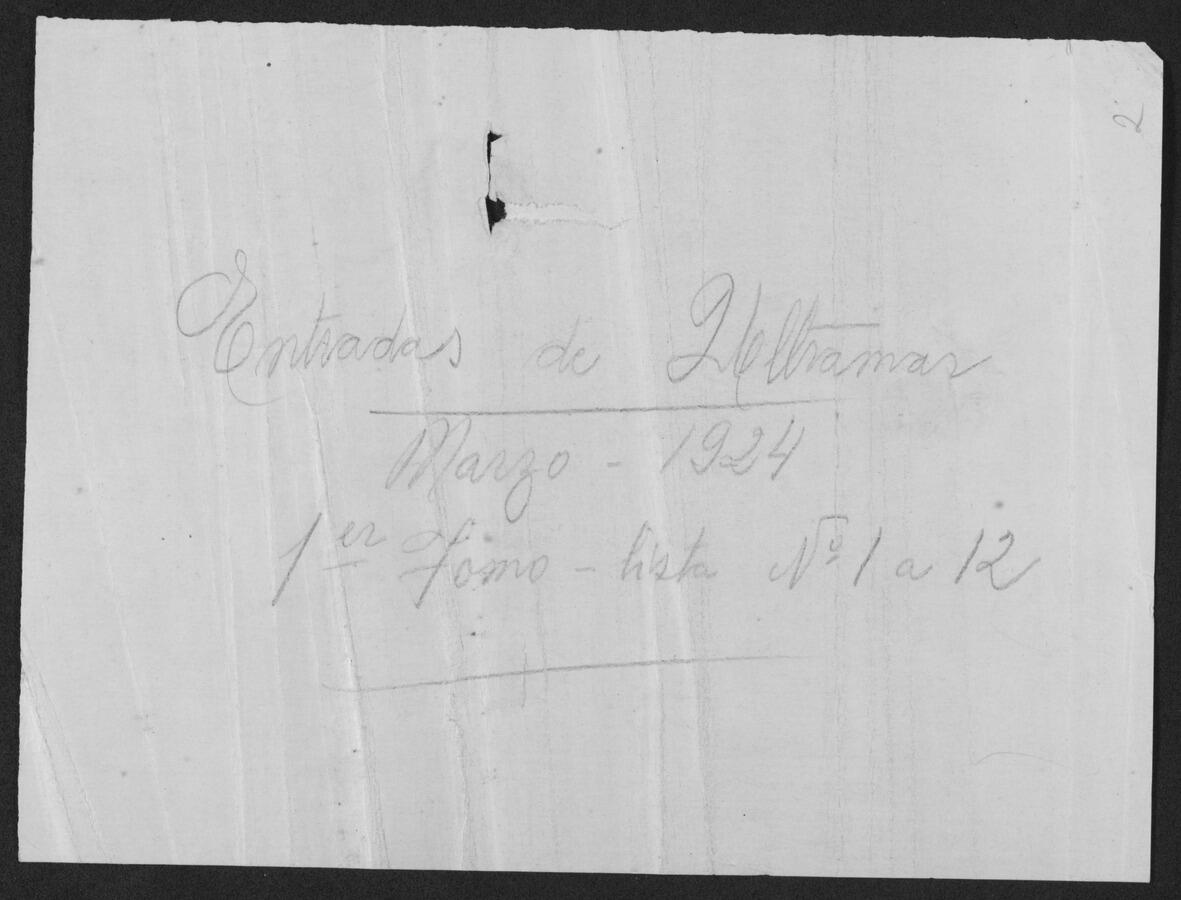 2
Entradas de Ultramar
Marzo - 1924
1er Tomo - lista Nº 1 a 12